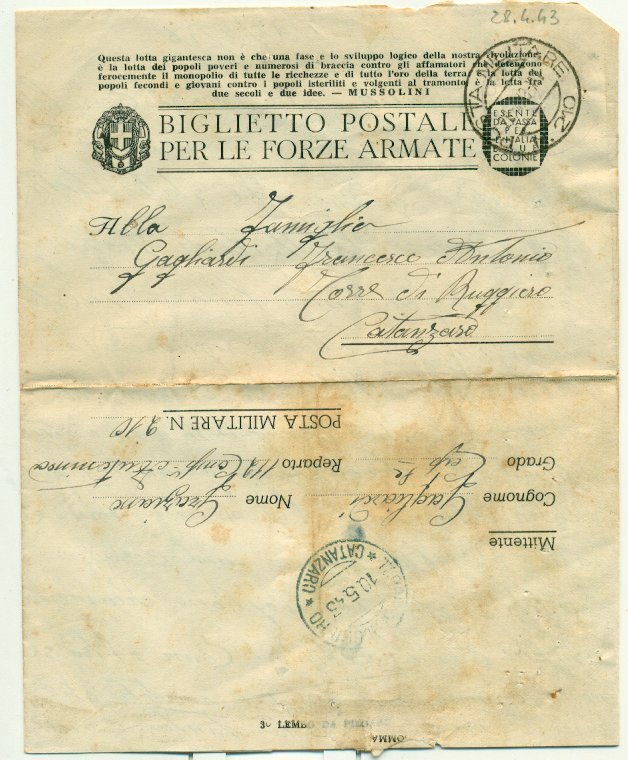 28.4.43
Questa lotta gigantesca non è che una fase e lo sviluppo logico della nostra rivoluzione;
è la lotta dei popoli poveri e numerosi di braccia contro gli affamatori che detengono
ferocemente il monopolio di tutte le ricchezze e di tutto l'oro della terra; è la lotta dei
popoli fecondi e giovani contro i popoli isteriliti e volgenti al tramonto; è la lotta tra
due secoli e due idee. — MUSSOLINI
POSTA MILITARE N. 210
BIGLIETTO POSTALE
PER LE FORZE ARMATE
ESENTE
DA TASSA
PER
L'ITALIA
COLONIE
Alla Famiglia
Gagliardi Francesco Antonio
Torre di Ruggiero
Catanzaro
Mittente
Cognome Gagliardi Nome Graziano
Grado Reparto 112
POSTA MILITARE N. 210
10.5.43
* CATANZARO *
3º LEMBO DA PIEGARE